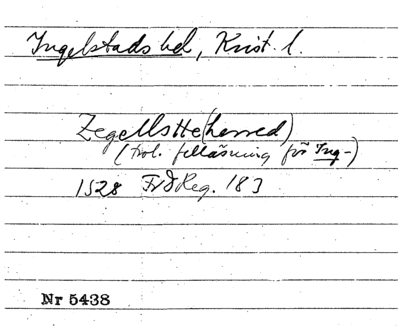 Ingelstads hd, Krist. l.
Zegellstte (herred)
(trol. felläsning för Ing-)
1528 FrdReg. 183
Nr 5438